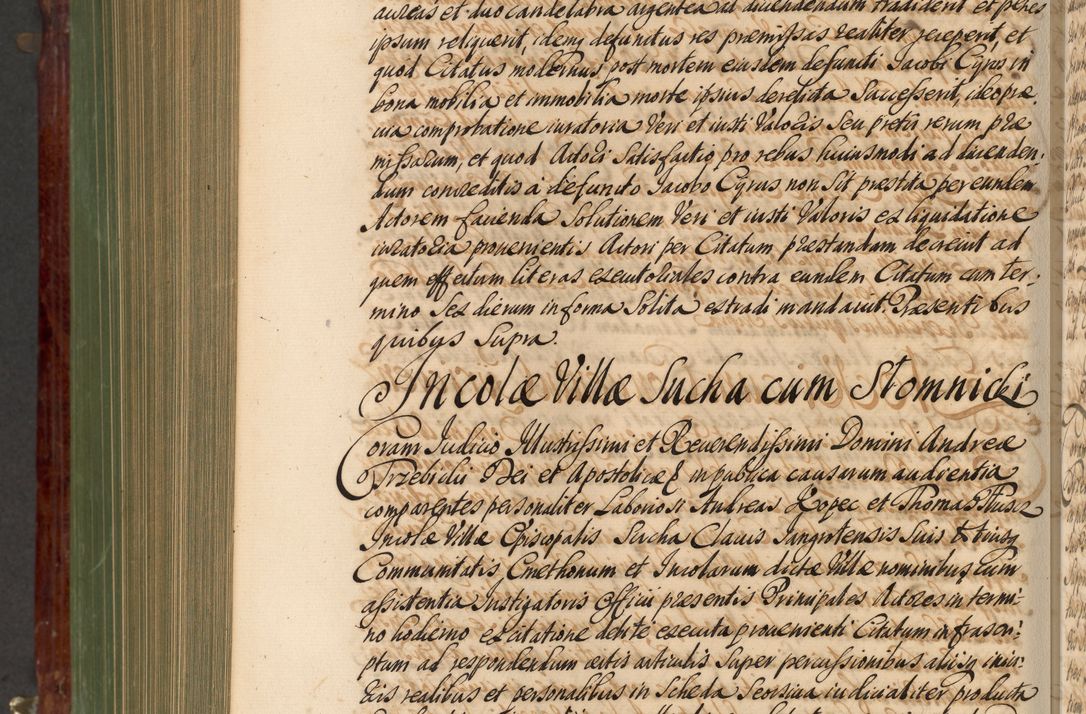 aureas et duo candelabra argentea ad diuendendum tradiderit et penes
ipsum reliquerit, idemq defunctus res præmissas realiter receperit, et
quod Citatus modernus post mortem eiusdem defuncti Jacobi Cyrus in
bona mobilia et immobilia morte ipsius derelicta Successerit, ideo præ
uia comprobatione iuratoria Veri et iusti Valoris Seu pretii rerum præ
missarum, et quod Actori Satisfactio pro rebus huiusmodi ad diuenden:
dum concreditis à defuncto Jacobo Cyrus non Sit præstita per eundem
Actorem facienda Solutionem Veri et iusti Valoris ex liquidatione
iuratoria prouenientis Actori per Citatum præstandam decreuit ad
quem effectum literas executoriales contra eundem Citatum cum ter:
mino Sex dierum in forma Solita extradi mandauit. Præsentibus
quibus Supra.
Incolæ Villæ Sucha cum Stomnicki
Coram Judicio Illustrissimi et Reuerendissimi Domini Andreæ
Trzebicki Dei et Apostolicæ & in publica causarum audientia
comparentes personaliter Laboriosi Andreas Kopec et Thomas
Incolæ Villæ Episcopalis Sucha Clauis Suis & totius
Communitatis Cmethonum et Incolarum dictæ Villæ nominibus cum
assistentia Instigatoris Officii præsentis Principales Actores in termi:
no hodierno ex citatione debite executa prouenienti Citatum infrascri:
ptum ad respondendum certis articulis Super percussionibus aliisq iniu:
riis realibus et personalibus in Scheda Seorsiua iudicialiter producta